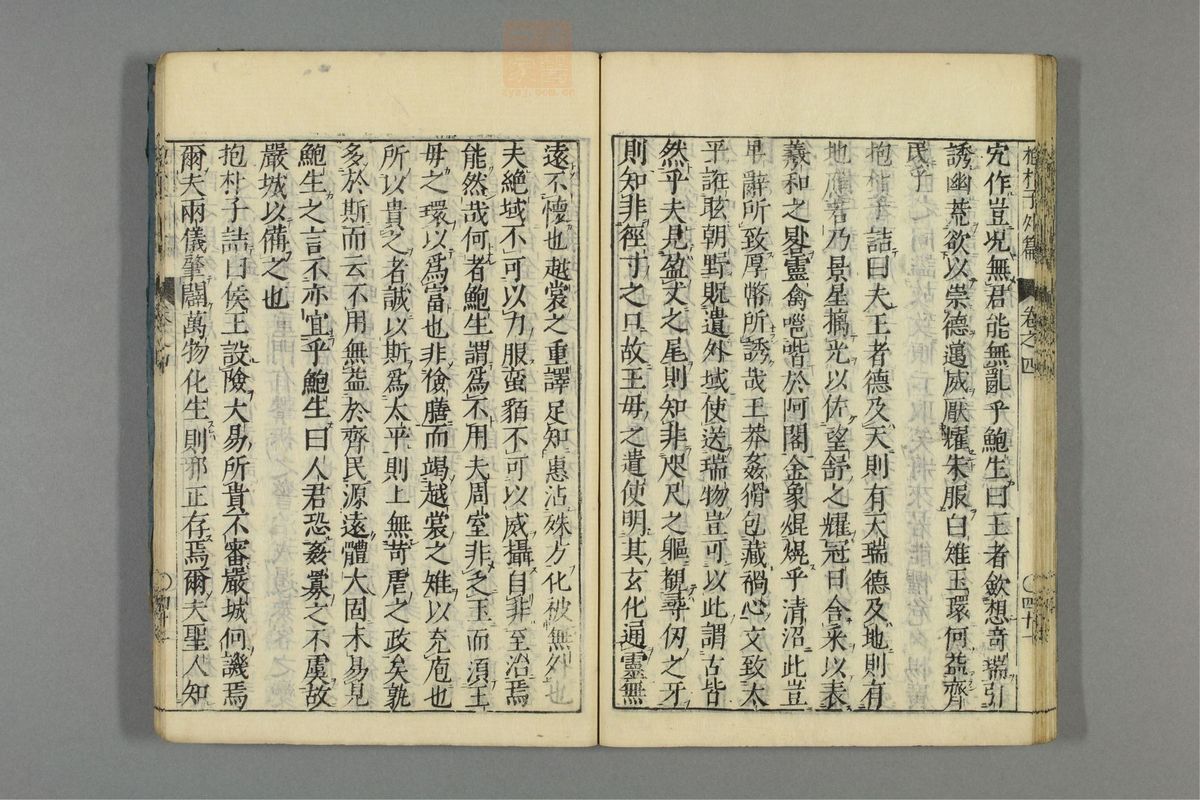 抱朴子外篇 卷之四 〇四十一
宄作豈咒無君能無亂乎鮑生曰王者歛想竒瑞引
誘幽荒欲以崇德邁威厭耀朱服白雉玉環何益齊
民乎
抱朴子詰曰夫王者德及天則有天瑞德及地則有
地應若乃景星摛光以佐望舒之耀冠日含采以表
羲和之晷靈禽嗈喈於阿閣金象焜熀乎清沼此豈
卑辭所致厚幣所誘哉王莽姦猾包藏禍心文致太
平誑眩朝野貺遺外域使送瑞物豈可以此謂古皆
然乎夫見盈丈之尾則知非咫尺之軀覩尋仞之牙
則知非徑寸之口故王毋之遣使明其玄化通靈無
遠不懷也越裳之重譯足知惠沾殊方化被無外也
夫絶域不可以力服蠻貊不可以威攝自非至治焉
能然哉何者鮑生謂爲不用夫周室非乏玉而須王
毋之環以爲富也非儉膳而竭越裳之雉以充庖也
所以貴之者誠以斯爲太平則上無苛虐之政矣孰
多於斯而云不用無益於齊民源遠體大固未易見
鮑生之言不亦宜乎鮑生曰人君恐姦釁之不虞故
嚴城以備之也
抱朴子詰曰侯王設險大易所貴不審嚴城何譏焉
爾夫兩儀肇闢萬物化生則邪正存焉爾夫聖人知